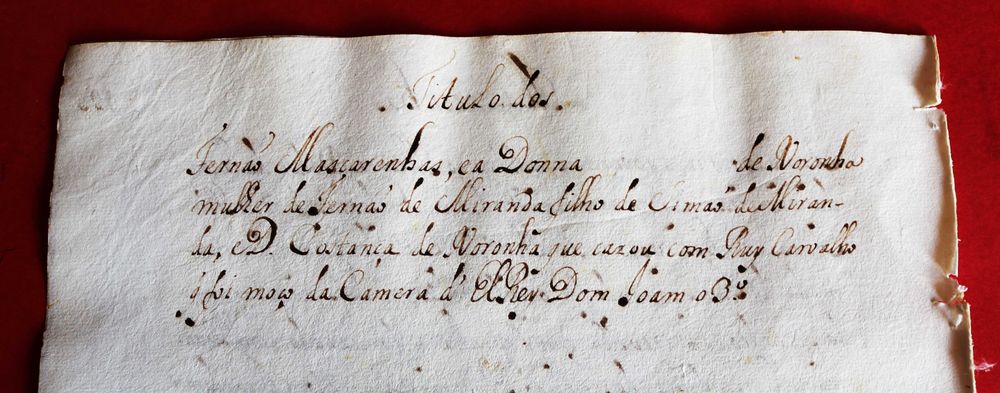 Titulo dos.
Fernaõ Mascarenhas, e a Donna de Noronha
mulher de Fernaõ de Miranda filho de Simaõ de Miran-
da, e D. Costança de Noronha que cazou com Ruy Carvalho
q foi moço da Camera d' ElRey Dom Joam o 3º